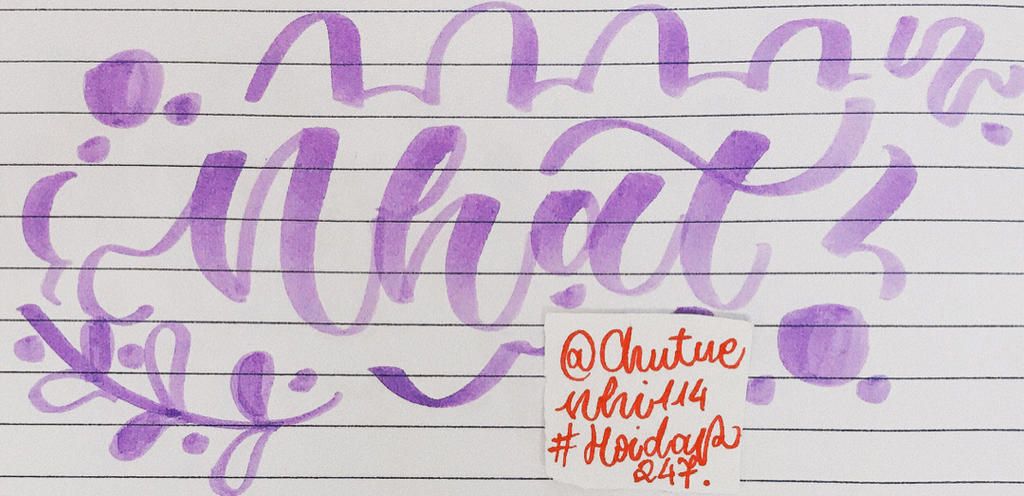 Nhạt
@Chutue
nhi114
#Hoidap
247.